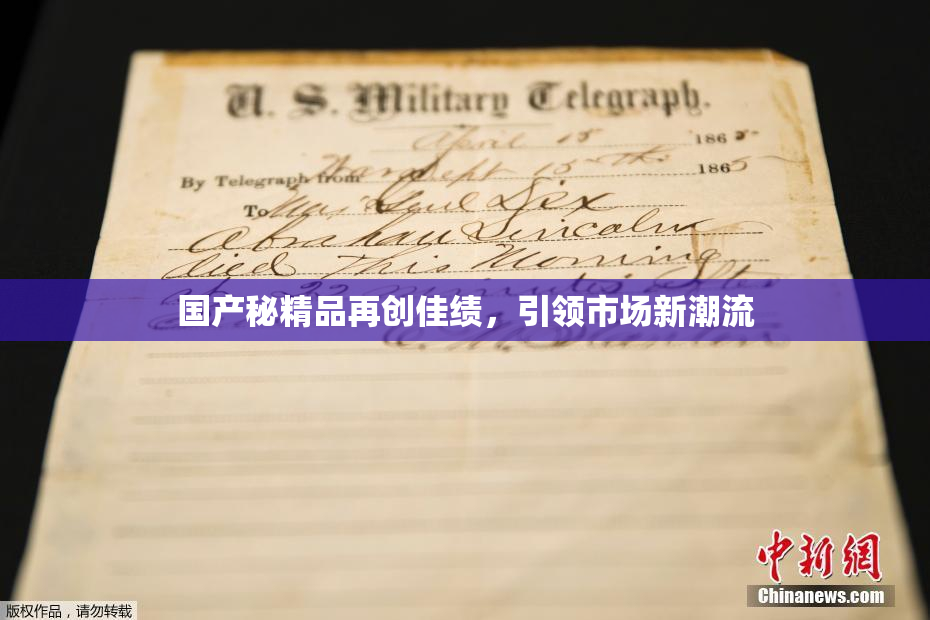 U. S. Military Telegraph.
April 15 1865
By Telegraph from War Dept 15th 1865
To Maj Genl Dix
Abraham Lincoln
died This Morning
at 22 minutes after
国产秘精品再创佳绩，引领市场新潮流
E. M. Stanton
中新网
Chinanews.com
版权作品，请勿转载